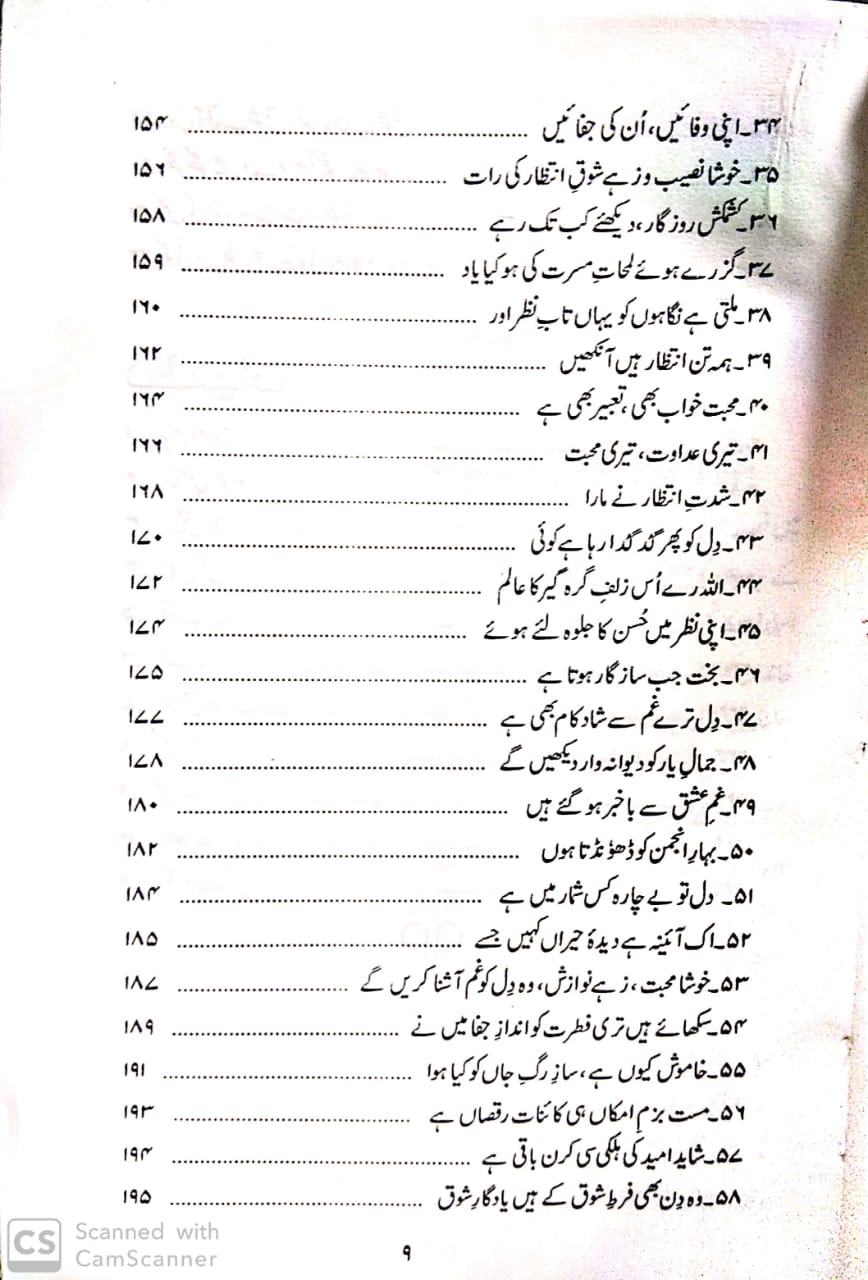 ۳۴۔اپنی وفائیں، اُن کی جفائیں ........ ۱۵۴
۳۵۔خوشا نصیب وز ہے شوقِ انتظار کی رات ........ ۱۵۶
۳۶۔کشمکش روزگار، دیکھئے کب تک رہے ........ ۱۵۸
۳۷۔گزرے ہوئے لمحاتِ مسرت کی ہو کیا یاد ........ ۱۵۹
۳۸۔ملتی ہے نگاہوں کو یہاں تابِ نظر اور ........ ۱۶۰
۳۹۔ہمہ تن انتظار ہیں آنکھیں ........ ۱۶۲
۴۰۔محبت خواب بھی، تعبیر بھی ہے ........ ۱۶۴
۴۱۔تیری عداوت، تیری محبت ........ ۱۶۶
۴۲۔شدتِ انتظار نے مارا ........ ۱۶۸
۴۳۔دِل کو پھر گدگدا رہا ہے کوئی ........ ۱۷۰
۴۴۔اللہ رے اُس زلفِ گرہ گیر کا عالم ........ ۱۷۲
۴۵۔اپنی نظر میں حُسن کا جلوہ لئے ہوئے ........ ۱۷۴
۴۶۔بخت جب سازگار ہوتا ہے ........ ۱۷۵
۴۷۔دِل ترے غم سے شاد کام بھی ہے ........ ۱۷۷
۴۸۔جمالِ یار کو دیوانہ وار دیکھیں گے ........ ۱۷۸
۴۹۔غمِ عشق سے باخبر ہو گئے ہیں ........ ۱۸۰
۵۰۔بہارِ انجمن کو ڈھونڈتا ہوں ........ ۱۸۲
۵۱۔ دل تو بے چارہ کس شمار میں ہے ........ ۱۸۴
۵۲۔اک آئینہ ہے دیدۂ حیراں کہیں جسے ........ ۱۸۵
۵۳۔خوشا محبت، زہے نوازش، وہ دِل کو غم آشنا کریں گے ........ ۱۸۷
۵۴۔سکھائے ہیں تری فطرت کو اندازِ جفا میں نے ........ ۱۸۹
۵۵۔خاموش کیوں ہے، سازِ رگِ جاں کو کیا ہوا ........ ۱۹۱
۵۶۔مست بزمِ امکاں ہی کائنات رقصاں ہے ........ ۱۹۳
۵۷۔شاید امید کی ہلکی سی کرن باقی ہے ........ ۱۹۴
۵۸۔وہ دِن بھی فرطِ شوق کے ہیں یادگارِ شوق ........ ۱۹۵
۹
CS Scanned with
CamScanner